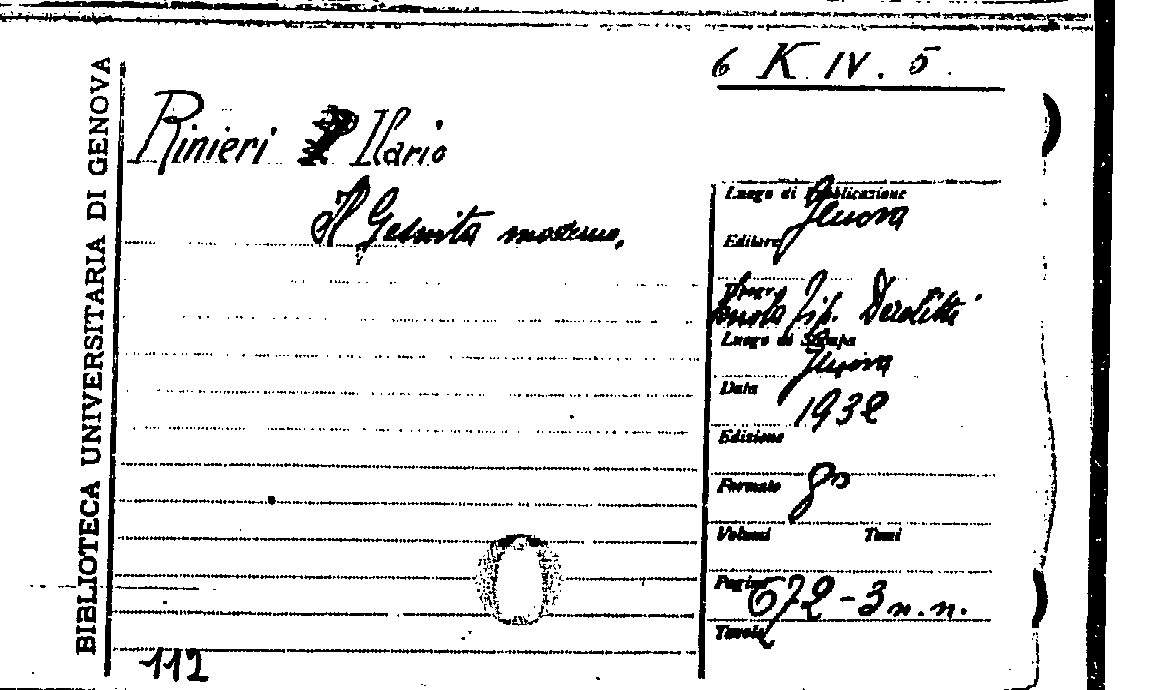 BIBLIOTECA UNIVERSITARIA DI GENOVA
6 K IV. 5.
Rinieri Ilario
Il Gesuita moderno.
Luogo di Pubblicazione
Genova
Editore
Tipogr.
Tip. Derelitti
Luogo di Stampa
Genova
Data
1932
Edizione
Formato 8º
Volumi Tomi
Pagine 672-3 n.n.
Tavole
112